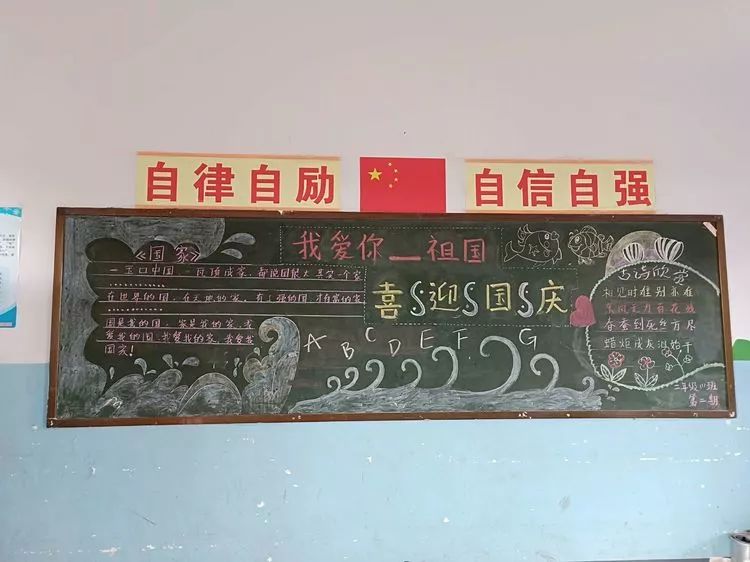 自律自励
自信自强
《国家》
一玉口中国 一瓦顶成家 都说国很大 其实一个家
在世界的国,在天地的家,有了强的国,才有富的家
国是我的国,家是我的家,我
爱我的国,我爱我的家,我爱我
国家!
我爱你__祖国
喜迎国庆
A B C D E F G
古诗欣赏
相见时难别亦难
东风无力百花残
春蚕到死丝方尽
蜡炬成灰泪始干
二年级(1)班
第二期